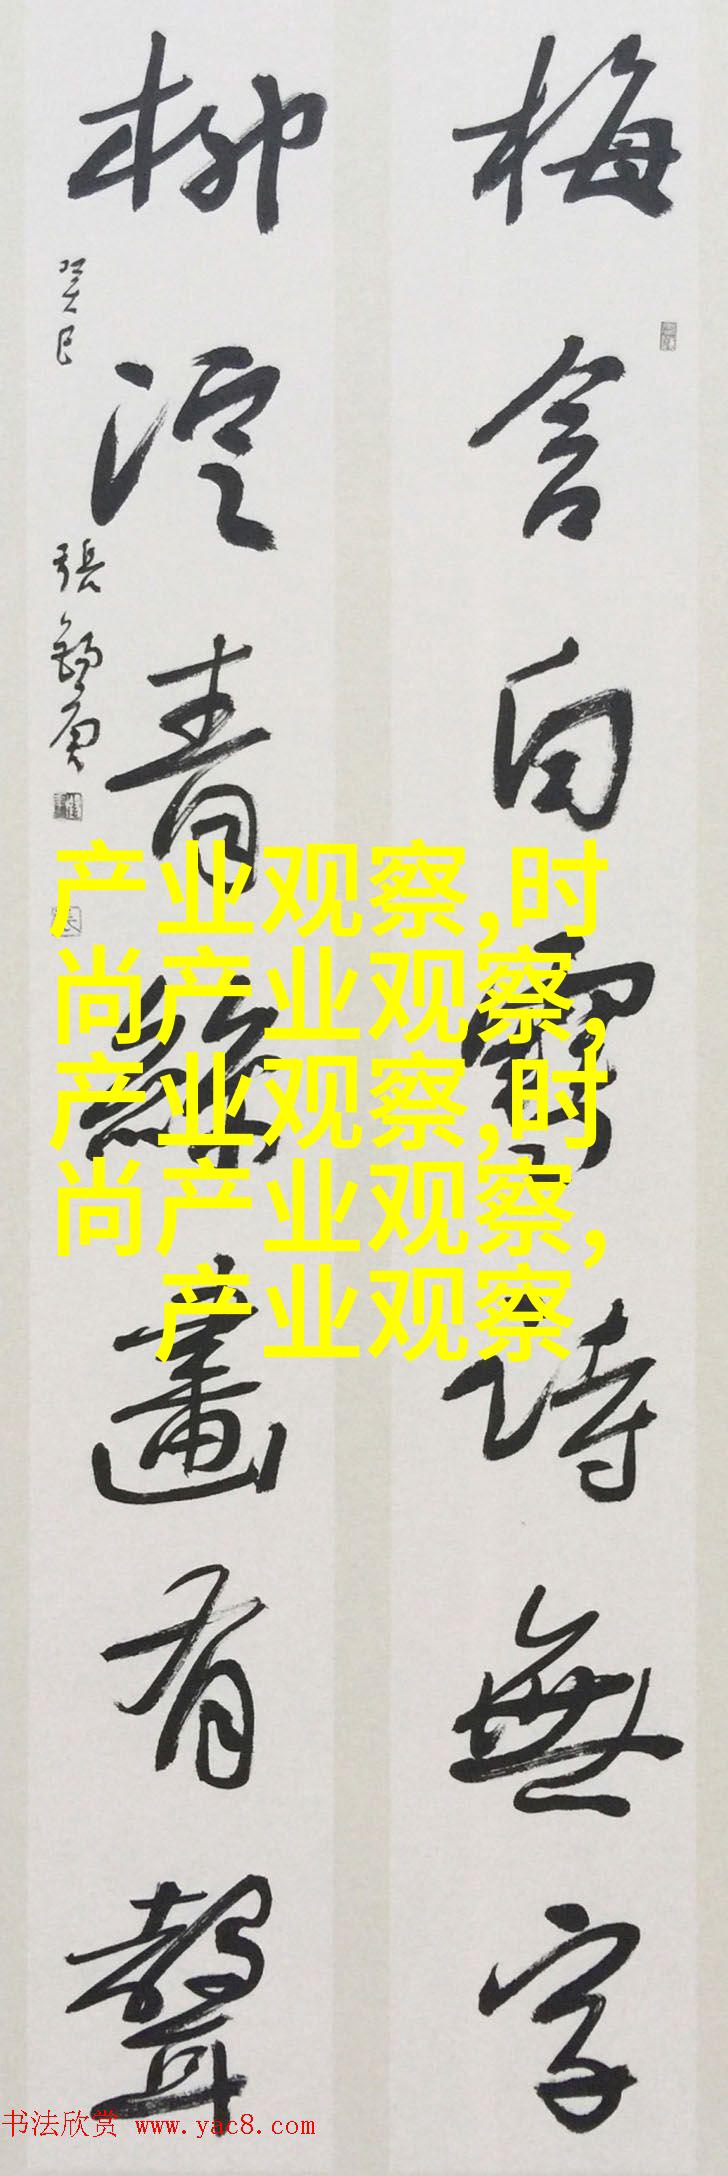 梅含白雪詩無字
柳浥青絲畫有聲
癸巳
張錫庚
产业观察,时
尚产业观察,
产业观察,时
尚产业观察,
产业观察
书法欣赏 www.yac8.com